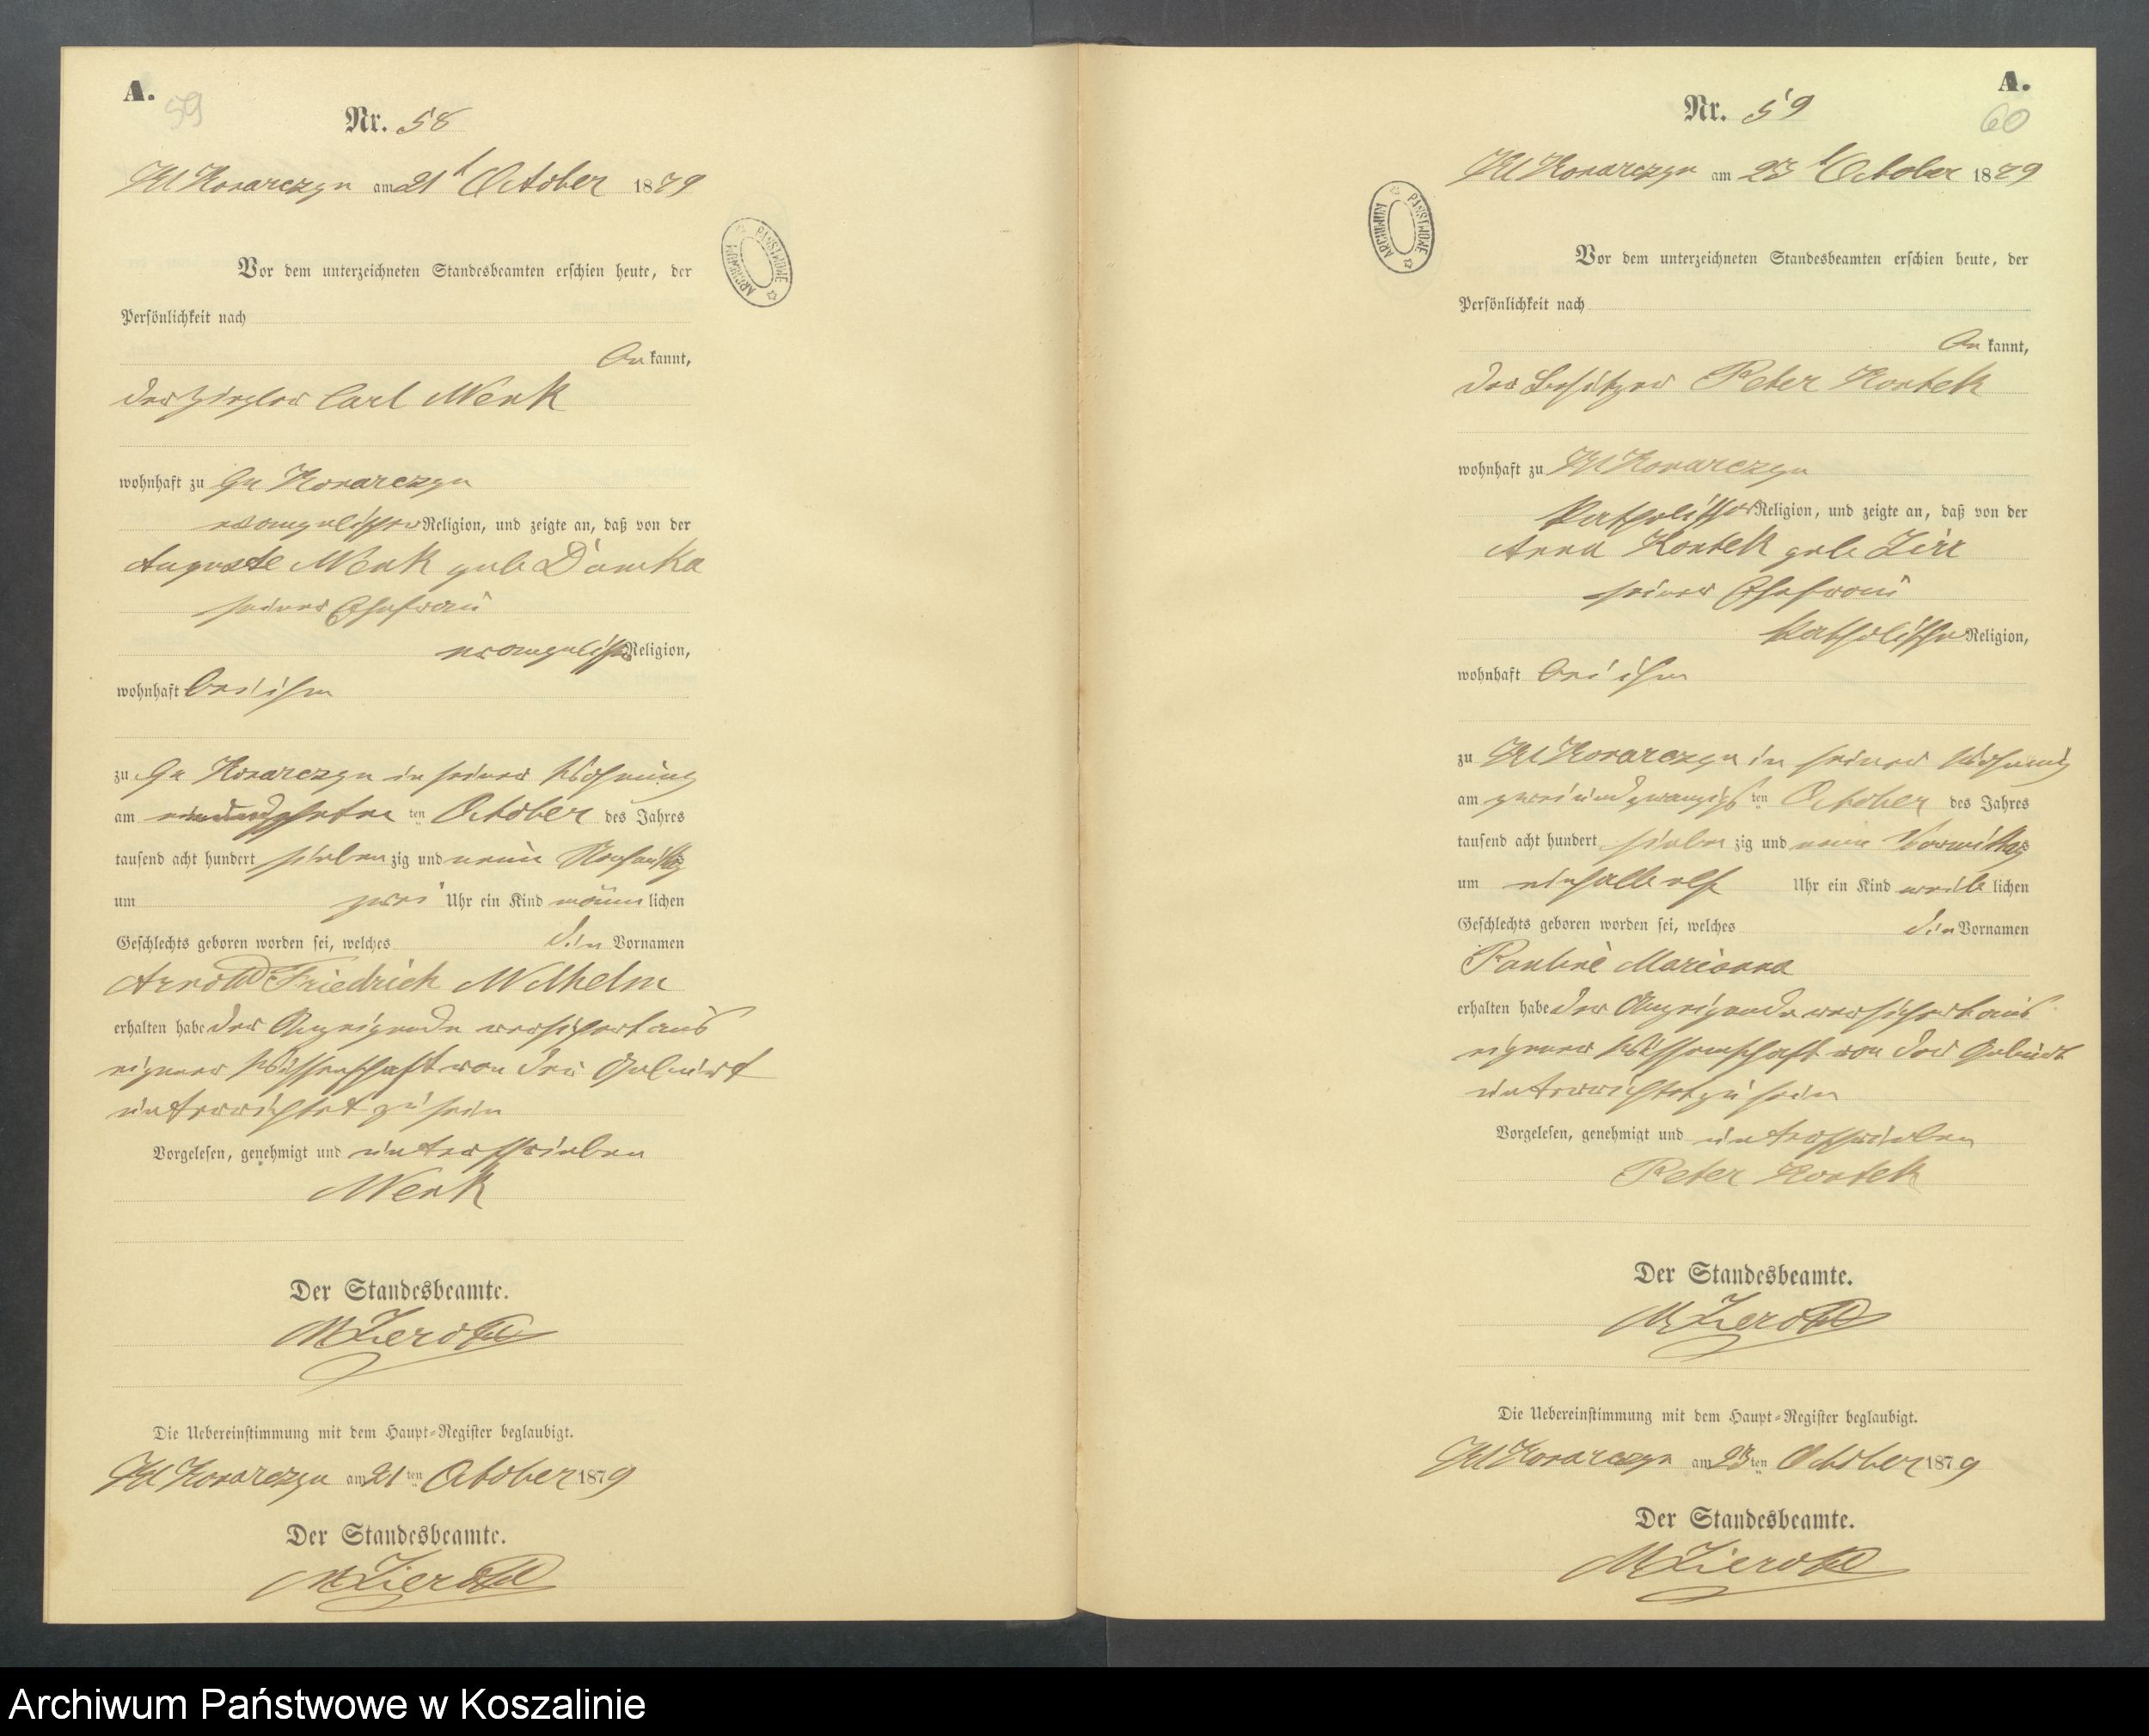 A.
59
Nr. 58
Kl Konarczyn am 21t October 1879
ARCHIWUM PAŃSTWOWE
Vor dem unterzeichneten Standesbeamten erschien heute, der
Persönlichkeit nach
be kannt,
der Ziegler Carl Wenk
wohnhaft zu Gr Konarczyn
evangelischer Religion, und zeigte an, daß von der
Auguste Wenk geb
seiner Ehefrau
evangelischer Religion,
wohnhaft bei ihm
zu Gr Konarczyn in seiner Wohnung
am ten October des Jahres
tausend acht hundert sieben zig und neun Nachmittag
um zwei Uhr ein Kind männ lichen
Geschlechts geboren worden sei, welches die Vornamen
Arnold Friedrich Wilhelm
erhalten habe der Anzeigende versichert aus
eigener Wissenschaft von der Geburt
unterrichtet zu sein
Vorgelesen, genehmigt und unterschrieben
Wenk
Der Standesbeamte.
Die Uebereinstimmung mit dem Haupt-Register beglaubigt.
Kl Konarczyn am 21 ten October 1879
Der Standesbeamte.
A.
60
Nr. 59
Kl Konarczyn am 23t October 1879
ARCHIWUM PAŃSTWOWE
Vor dem unterzeichneten Standesbeamten erschien heute, der
Persönlichkeit nach
be kannt,
der Besitzer Peter Kontek
wohnhaft zu Kl Konarczyn
katholischer Religion, und zeigte an, daß von der
Anna Kontek geb
seiner Ehefrau
katholischer Religion,
wohnhaft bei ihm
zu Kl Konarczyn in seiner Wohnung
am zweiundzwanzigs ten October des Jahres
tausend acht hundert sieben zig und neun Vormittags
um einhalb elf Uhr ein Kind weib lichen
Geschlechts geboren worden sei, welches die Vornamen
Pauline Marianna
erhalten habe der Anzeigende versichert aus
eigener Wissenschaft von der Geburt
unterrichtet zu sein
Vorgelesen, genehmigt und unterschrieben
Peter Kontek
Der Standesbeamte.
Die Uebereinstimmung mit dem Haupt-Register beglaubigt.
Kl Konarczyn am 23 ten October 1879
Der Standesbeamte.
Archiwum Państwowe w Koszalinie